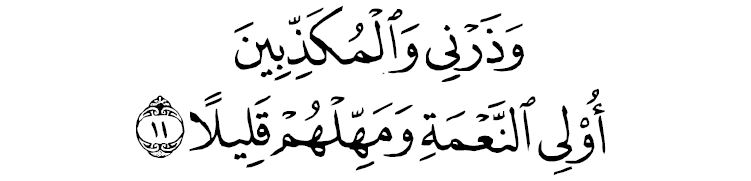 وَذَرْنِى وَٱلْمُكَذِّبِينَ
أُو۟لِى ٱلنَّعْمَةِ وَمَهِّلْهُمْ قَلِيلًا ١١